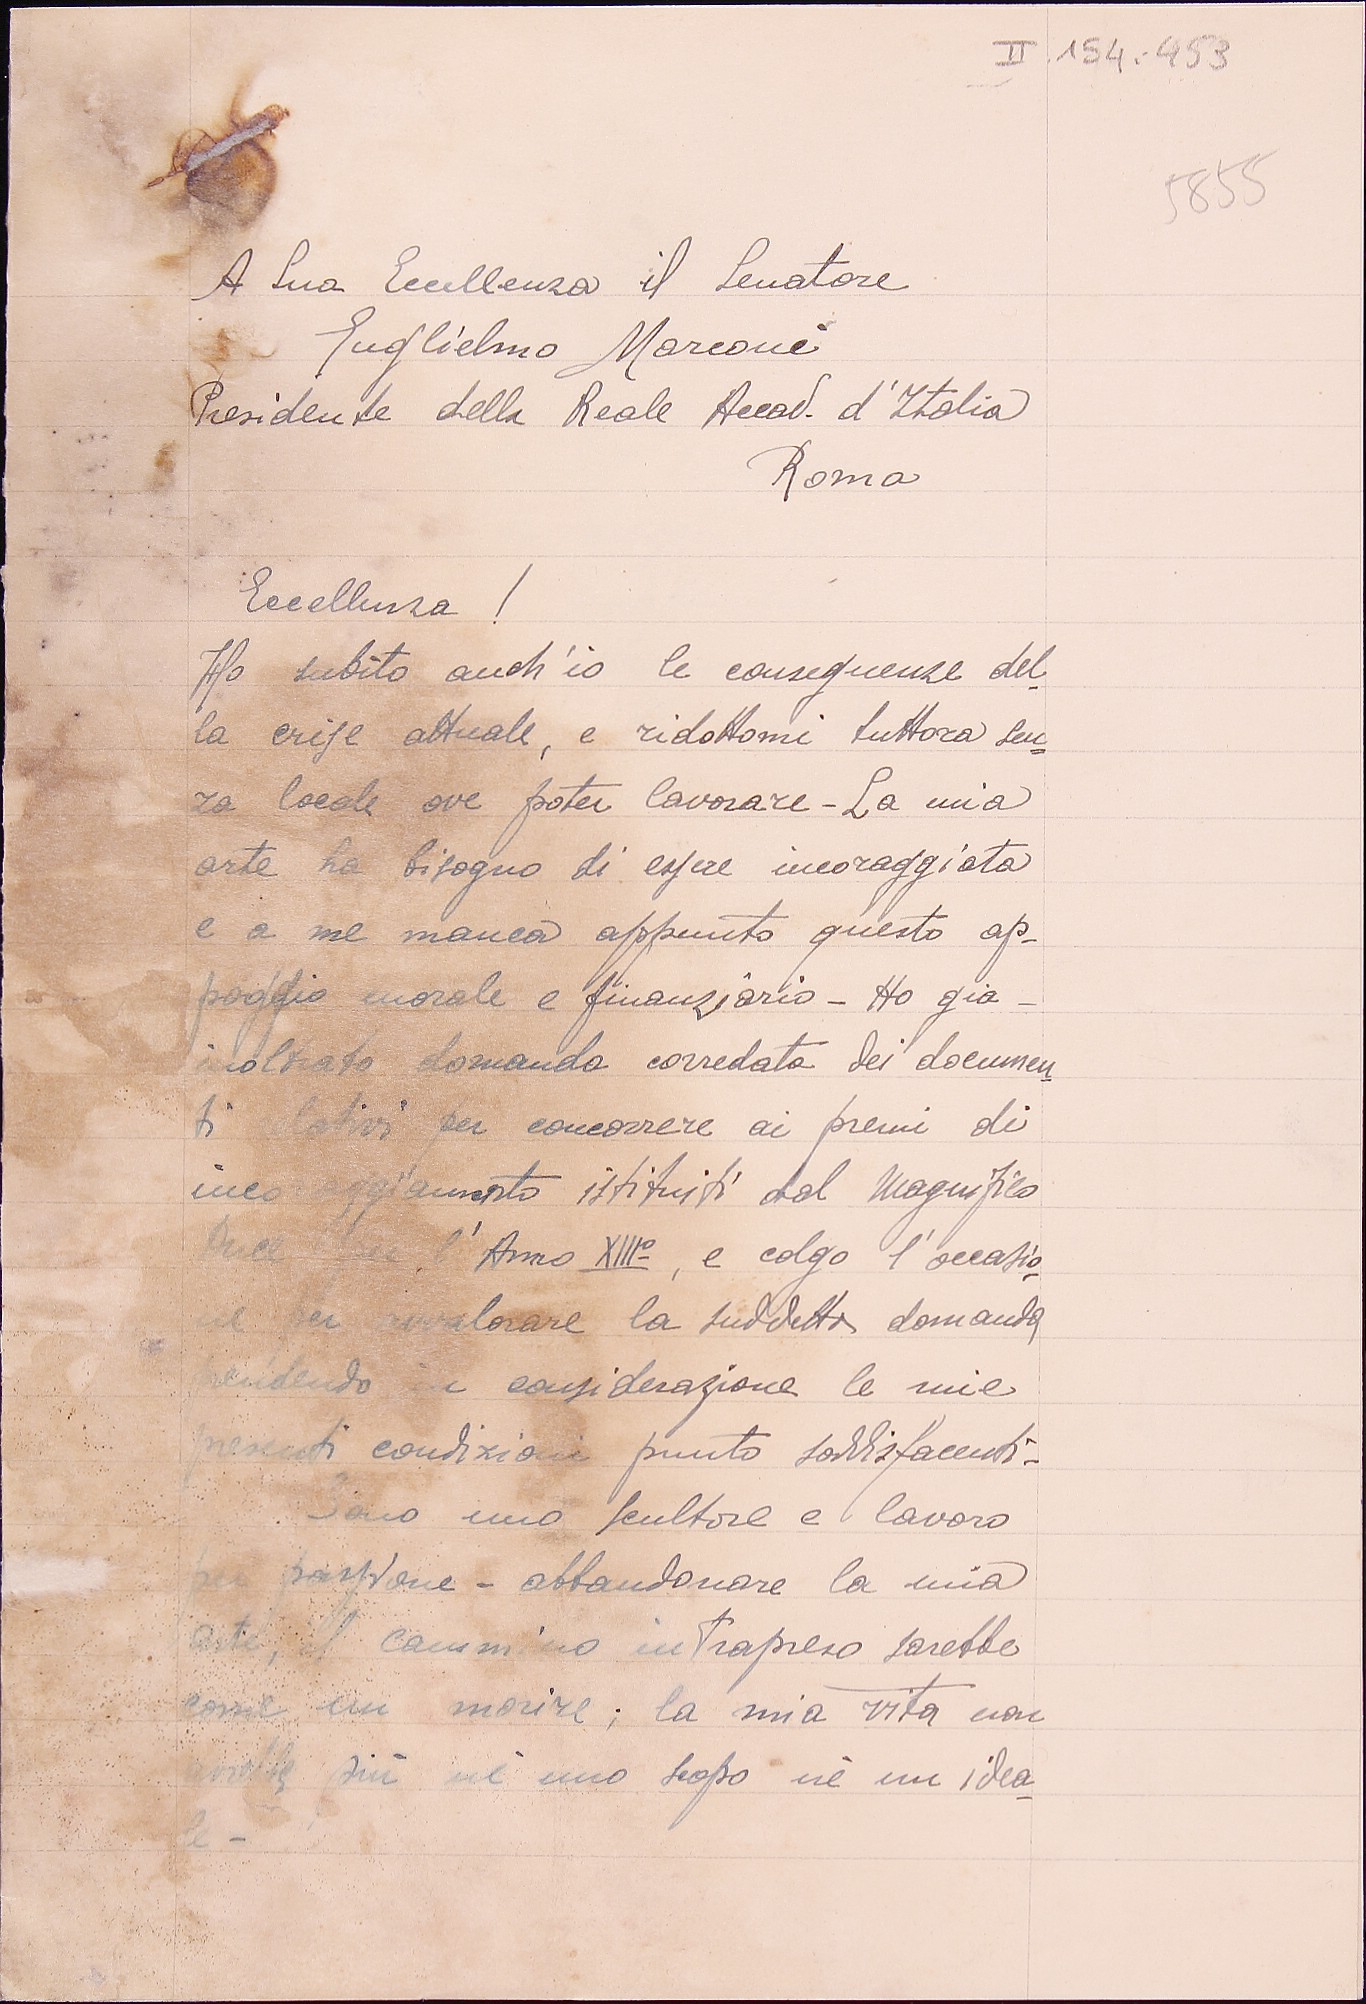 II. 154. 453
5855
A Sua Eccellenza il Senatore
Guglielmo Marconi
Presidente della Reale Accad. d'Italia
Roma
Eccellenza !
Ho subito anch'io le conseguenze del-
la crise attuale, e ridottomi tuttora sen-
za locale ove poter lavorare - La mia
arte ha bisogno di essere incoraggiata
e a me manca appunto questo ap-
poggio morale e finanziario - Ho gia -
inoltrato domanda corredata dei documen-
ti per concorrere ai premi di
incoraggiamento istituiti dal Magnifico
Duce l'Anno XIIIº, e colgo l'occasio-
ne per avvalorare la suddetta domanda
prendendo in considerazione le mie
presenti condizioni punto soddisfacenti -
Sono uno scultore e lavoro
per passione - abbandonare la mia
arte, il cammino intrapreso sarebbe
come un morire; la mia vita non
avrebbe più nè uno scopo nè un idea-
le -